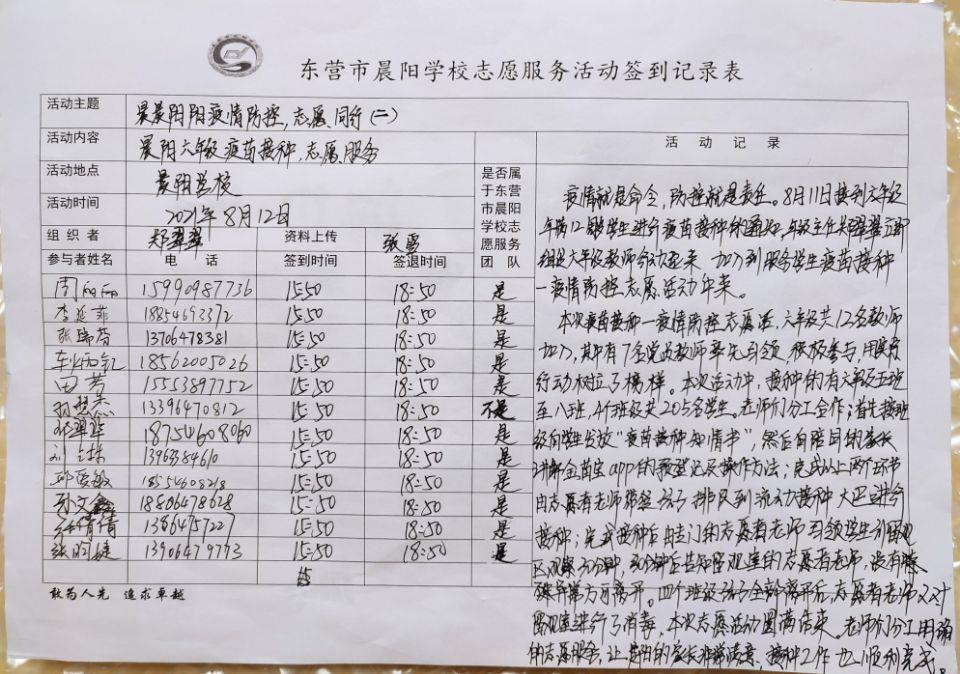 东营市晨阳学校志愿服务活动签到记录表
活动主题 晨晨阳阳疫情防控，志愿同行（二）
活动内容 晨阳六年级疫苗接种，志愿服务
活动地点 晨阳学校
活动时间 2021年8月12日
组织者 郑翠翠 资料上传 张雪
是否属
于东营
市晨阳
学校志
愿服务
团队
参与者姓名 电话 签到时间 签退时间
周丽丽 15990987736 15:50 18:50 是
李延菲 18854693372 15:50 18:50 是
张瑞芬 13706478381 15:50 18:50 是
车炳钇 18562005026 15:50 18:50 是
田芳 15553897752 15:50 18:50 是
13396470812 15:50 18:50 不是
郑翠翠 18754608060 15:50 18:50 是
刘 13963384610 15:50 18:50 是
敏 18554608218 15:50 18:50 是
孙文鑫 18806478628 15:50 18:50 是
倩倩 13864757227 15:50 18:50 是
张晓婕 13906479773 15:50 18:50 是
敢为人先 追求卓越
活动记录
疫情就是命令，防控就是责任。8月11日接到六年级
年满12周岁学生进行疫苗接种的通知，年级主任郑翠翠立即
组织六年级教师行动起来 加入到服务学生疫苗接种
一疫情防控志愿活动中来。
本次疫苗接种一疫情防控志愿活，六年级共12名教师
加入，其中有7名党员教师率先引领，积极参与，用实际
行动树立了榜样。本次活动中，接种的有六年级五班
至八班，4个班级共205名学生。老师们分工合作；首先接班
级向学生发放“疫苗接种知情书”，然后向陪同的家长
讲解金苗宝app的预登记及操作方法；完成以上两个环节
由志愿者老师 排队到流动接种大巴进行
接种；完成接种后由专门的志愿者老师引领学生到留观
区观察30分钟，30分钟后告知留观室的志愿者老师，没有
异常方可离开。四个班级孩子全部离开后，志愿者老师又对
留观室进行了消毒，本次志愿活动圆满结束。老师们分工明确
的志愿服务，让 的家长非常满意、接种工作也顺利完成。